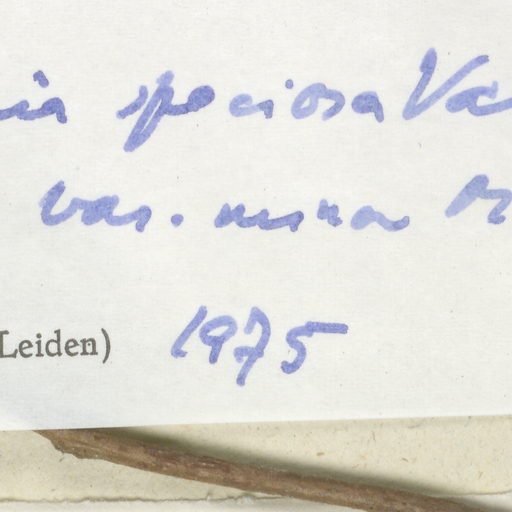 ia speciosa Va
var. minor
Leiden) 1975